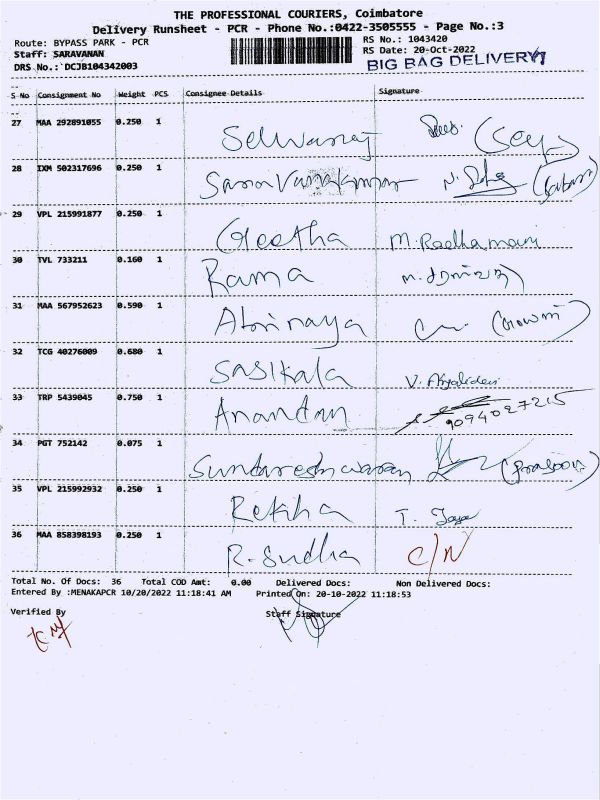 THE PROFESSIONAL COURIERS, Coimbatore
Delivery Runsheet - PCR - Phone No.:0422-3505555 - Page No.:3
Route: BYPASS PARK - PCR
RS No.: 1043420
Staff: SARAVANAN
RS Date: 20-Oct-2022
DRS No.: DCJB104342003
BIG BAG DELIVERY
S No Consignment No Weight PCS Consignee Details Signature
27 MAA 292891055 0.250 1 Selvaraj
28 IXM 502317696 0.250 1 SaraVanakumar
29 VPL 215991877 0.250 1 Geetha M. Radhamani
30 TVL 733211 0.160 1 Rama
31 MAA 567952623 0.590 1 Abinaya
32 TCG 40276009 0.680 1 Sasikala V.
33 TRP 5439045 0.750 1 Anandan 9094027215
34 PGT 752142 0.075 1 Sundareshwaran
35 VPL 215992932 0.250 1 Rekha T. Jaya
36 MAA 858398193 0.250 1 R. Sudha C/N
Total No. Of Docs: 36 Total COD Amt: 0.00 Delivered Docs: Non Delivered Docs:
Entered By :MENAKAPCR 10/20/2022 11:18:41 AM Printed On: 20-10-2022 11:18:53
Verified By Staff Signature